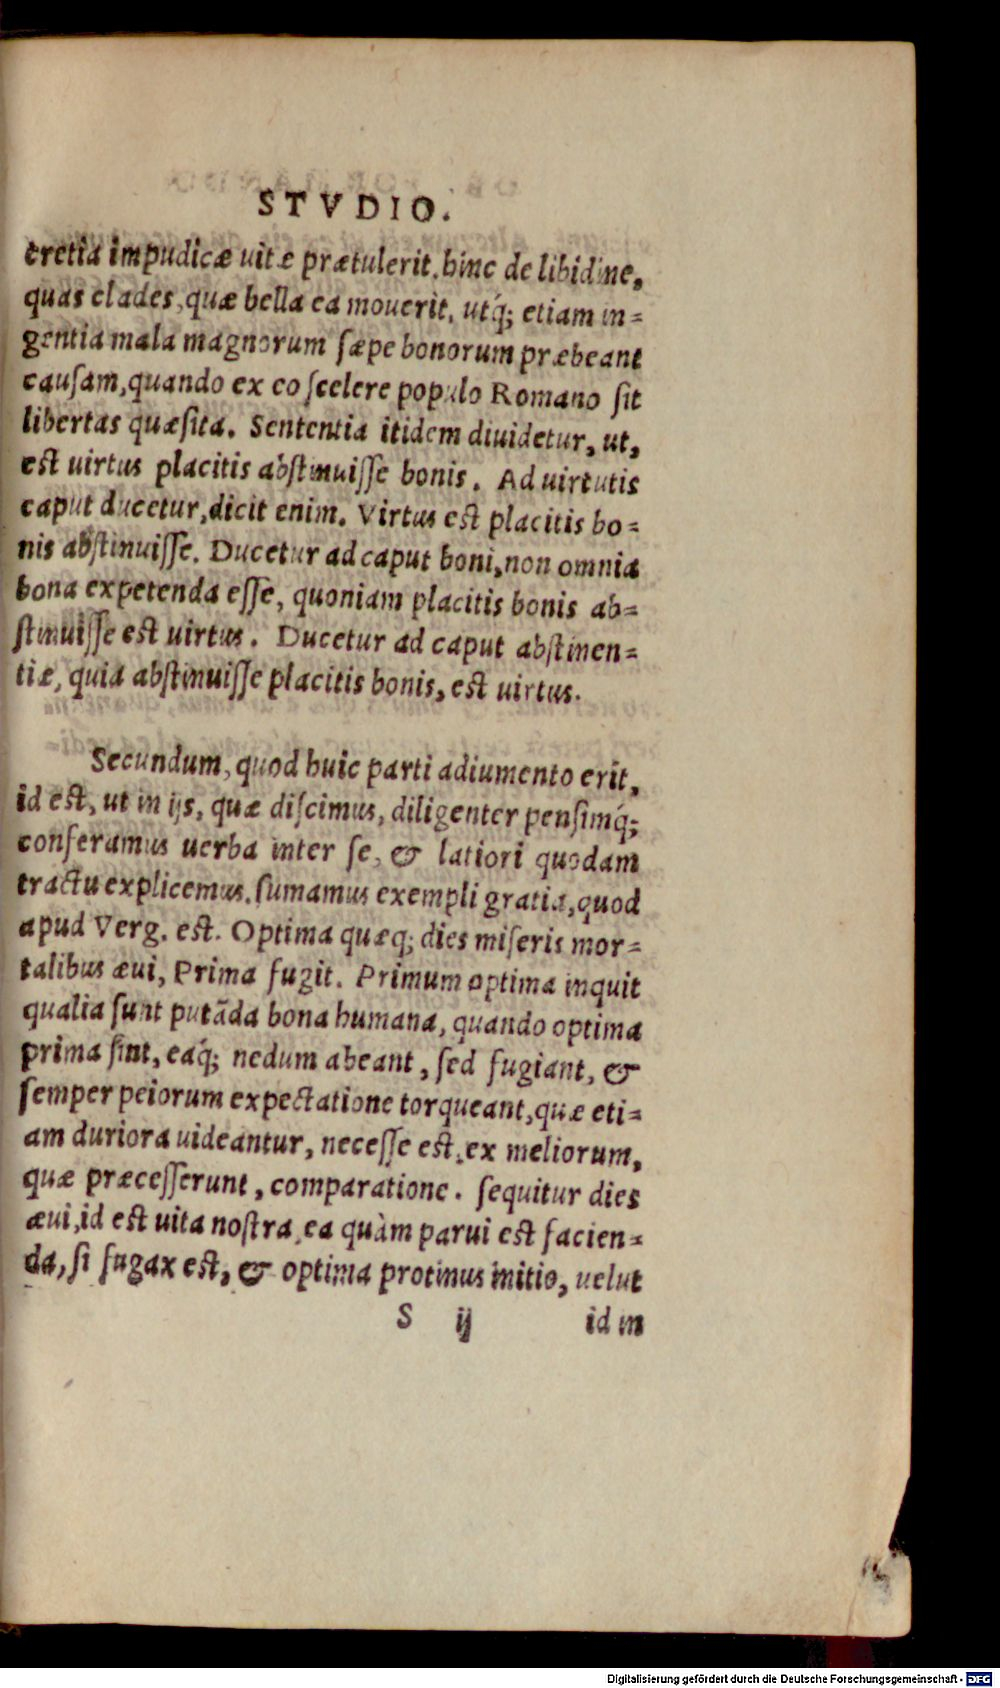 STVDIO.
cretia impudicæ uitæ prætulerit. hinc de libidine,
quas clades, quæ bella ea mouerit. utq́; etiam in-
gentia mala magnorum sæpe bonorum præbeant
causam, quando ex eo scelere populo Romano sit
libertas quæsita. Sententia itidem diuidetur, ut,
est uirtus placitis abstinuisse bonis. Ad uirtutis
caput ducetur, dicit enim. Virtus est placitis bo-
nis abstinuisse. Ducetur ad caput boni, non omnia
bona expetenda esse, quoniam placitis bonis ab-
stinuisse est uirtus. Ducetur ad caput abstinen-
tiæ, quia abstinuisse placitis bonis, est uirtus.
Secundum, quod huic parti adiumento erit,
id est, ut in ijs, quæ discimus, diligenter pensimq́;
conferamus uerba inter se, & latiori quodam
tractu explicemus. sumamus exempli gratia, quod
apud Verg. est. Optima quæq; dies miseris mor-
talibus æui, Prima fugit. Primum optima inquit
qualia sunt putāda bona humana, quando optima
prima sint, eaq́; nedum abeant, sed fugiant, &
semper peiorum expectatione torqueant, quæ eti-
am duriora uideantur, necesse est, ex meliorum,
quæ præcesserunt, comparatione. sequitur dies
æui, id est uita nostra, ea quàm parui est facien-
da, si fugax est, & optima protinus initio, uelut
S ij id in
Digitalisierung gefördert durch die Deutsche Forschungsgemeinschaft - DFG